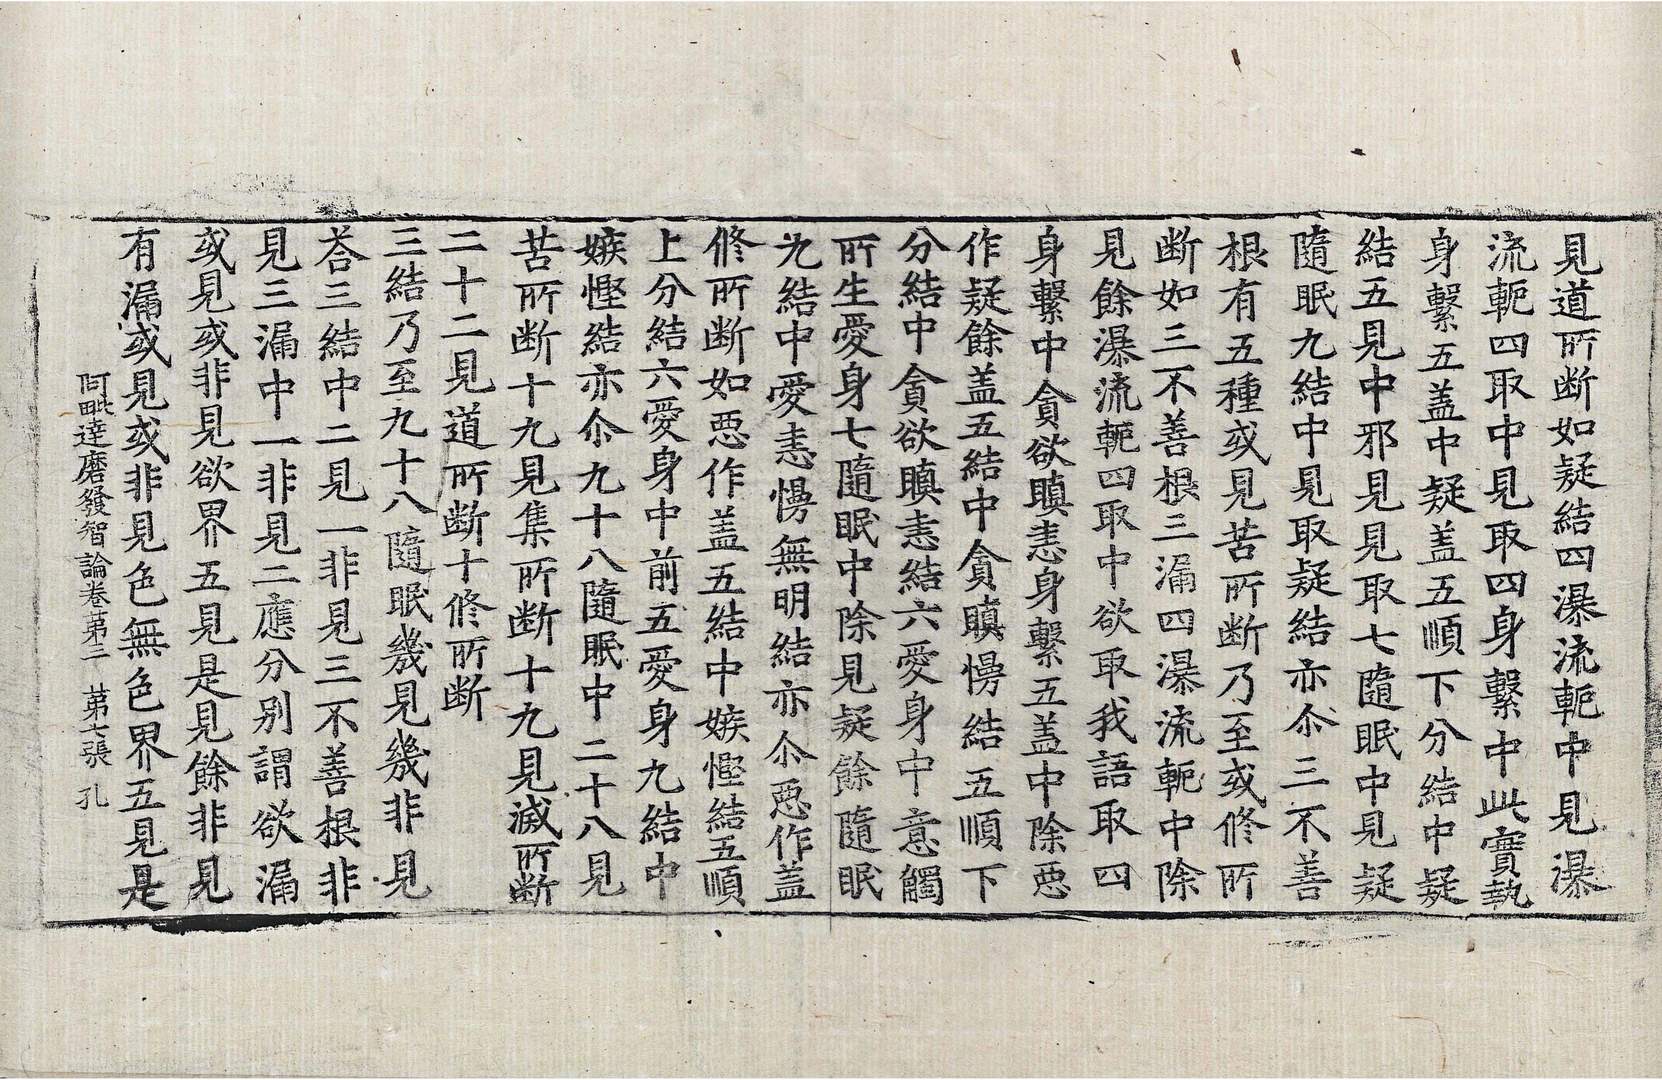 見道所断如疑結四瀑流軛中見瀑
流軛四取中見取四身繫中此實執
身繫五盖中疑盖五順下分結中疑
結五見中邪見見取七隨眠中見疑
隨眠九結中見取疑結亦尒三不善
根有五種或見苦所断乃至或修所
断如三不善根三漏四瀑流軛中除
見餘瀑流軛四取中欲取我語取四
身繫中貪欲瞋恚身繫五盖中除惡
作疑餘盖五結中貪瞋慢結五順下
分結中貪欲瞋恚結六愛身中意觸
所生愛身七隨眠中除見疑餘隨眠
九結中愛恚慢無明結亦尒惡作盖
修所断如惡作盖五結中嫉慳結五順
上分結六愛身中前五愛身九結中
嫉慳結亦尒九十八隨眠中二十八見
苦所断十九見集所断十九見滅所断
二十二見道所断十修所断
三結乃至九十八隨眠幾見幾非見
荅三結中二見一非見三不善根非
見三漏中一非見二應分別謂欲漏
或見或非見欲界五見是見餘非見
有漏或見或非見色無色界五見是
阿毗達磨發智論卷第三 第七張 孔